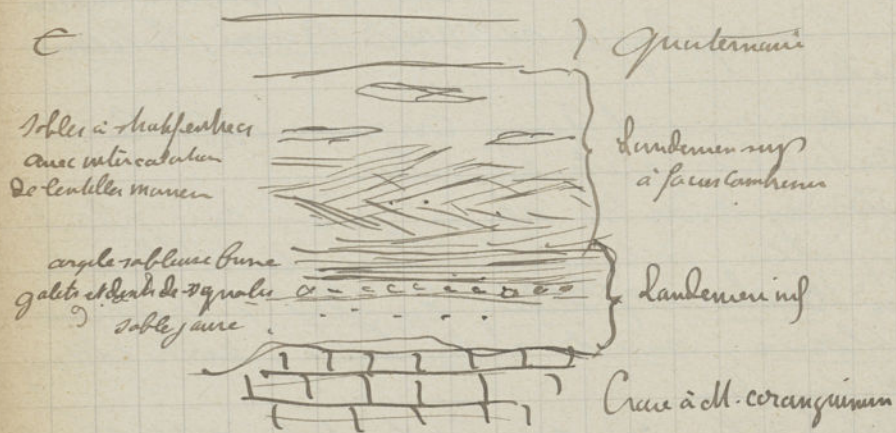 E
Quaternaire
Sables à stratif entrecr
avec intercalation
de lentilles marneu
Landenien sup
à facies continental
argile sableuse brune
galets et dents de squales
sable jaune
Landenien inf
Craie à M. coranguinum